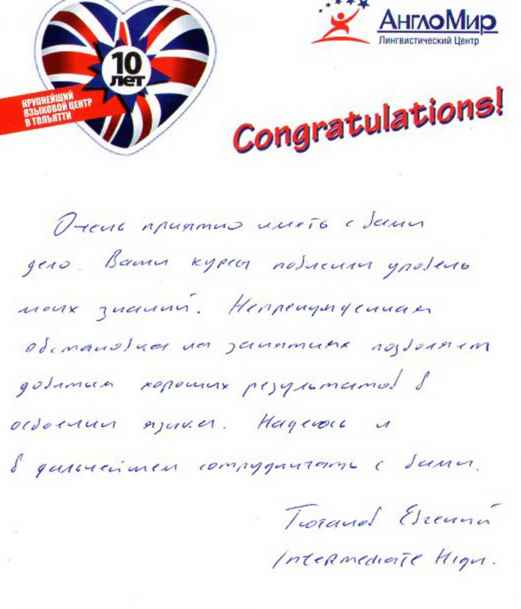 10
лет
КРУПНЕЙШИЙ
ЯЗЫКОВОЙ ЦЕНТР
В ТОЛЬЯТТИ
АнглоМир
Лингвистический Центр
Congratulations!
Очень приятно иметь с вами
дело. Ваши курсы повысили уровень
моих знаний. Непринужденная
обстановка на занятиях позволяет
добиться хороших результатов в
освоении языка. Надеюсь и
в дальнейшем сотрудничать с вами.
Евгений
Intermediate High.